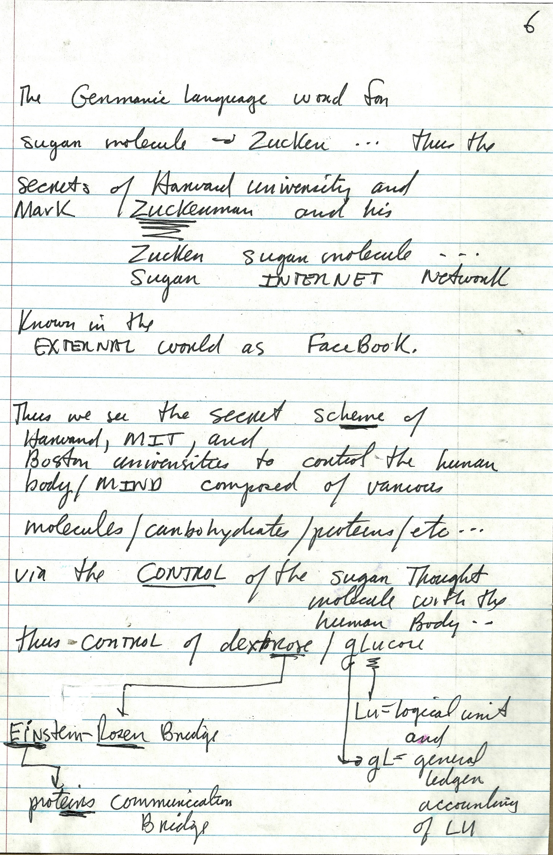 6
The Germanic Language word for
sugar molecule → Zucker ... thus the
secrets of Harvard university and
Mark Zuckerman and his
Zucker sugar molecule ...
Sugar INTERNET Network
Known in the
EXTERNAL world as FaceBook.
Thus we see the secret scheme of
Harvard, MIT, and
Boston universities to control the human
body/MIND composed of various
molecules/carbohydrates/proteins/etc...
via the CONTROL of the sugar Thought
molecule with the
human Body..
thus CONTROL of dextrose/gLucose
Lu=logical unit
and
Einstein-Rosen Bridge
gL= general
ledger
proteins communication
accounting
Bridge
of LU